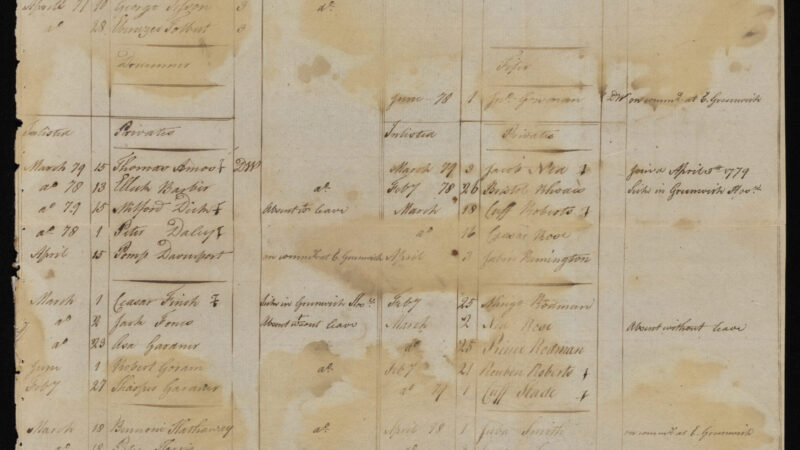 April 77 10 George 3 do
do 28 Ebenezer Tolbert 3
Drummer Fifer
June 78 1 Gorman DW on commd at E. Greenwich
Inlisted Privates Inlisted Privates
March 79 15 Thomas Amos DW March 79 3 Jacob Ned Join'd April 1779
do 78 13 Barber do Feby 78 26 Bristol Rhodes Sick in Greenwich
do 79 15 Dick Absent leave March 18 Cuff Roberts
do 78 1 Peter Daley do 16 Ceasar Rose
April 15 Pomp Davenport on commd at E. Greenwich April 3 Remington
March 1 Ceasar Finch Sick in Greenwich Feby 25 Mingo Rodman
do 2 Jack Jones Absent without leave March 2 Ned Rose Absent without leave
do 23 Asa Gardner do 25 Prince Rodman
June 1 Robert do Feby 21 Reuben Roberts
Feby 27 Sharper Gardner do 79 1 Cuff Slade
March 18 Bennoni do April 78 1 Juba Smith on commd at E. Greenwich
18